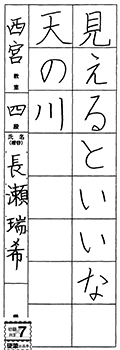 見えるといいな
天の川
西宮 教室 四段
氏名(雅号) 長瀬瑞希
7
硬筆